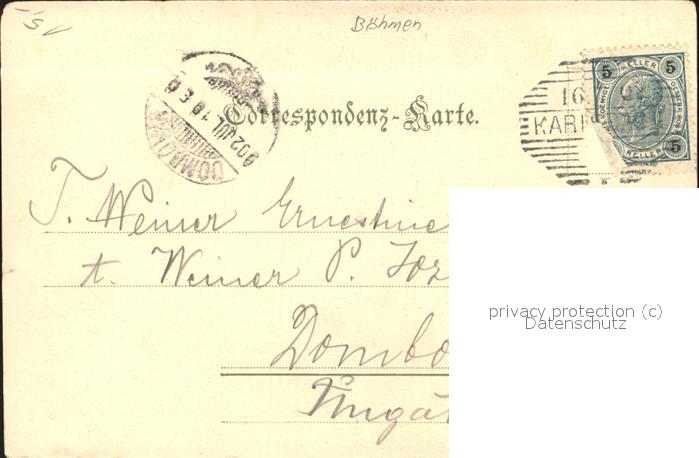 Böhmen
5,-
5 HELLER 5
HELLER 5
16
KARL
902 JUL 18
Correspondenz-Karte.
T. Weiner Ernestine
t. Weiner P. Joz
Dombo
Ungá
privacy protection (c)
Datenschutz